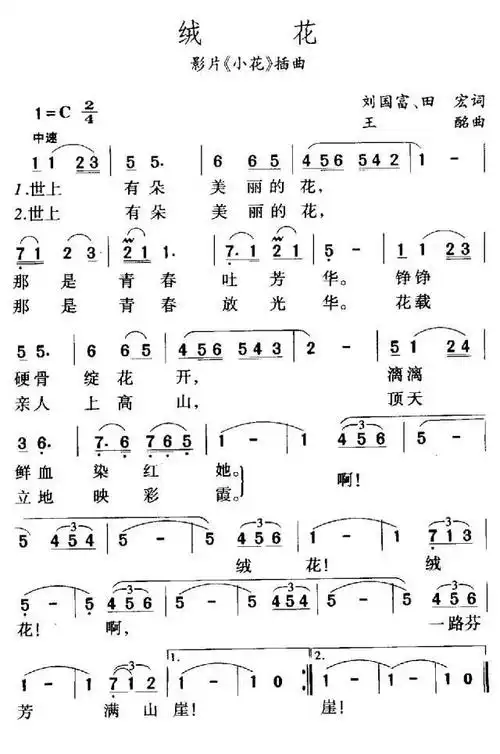 绒 花
影片《小花》插曲
1=C 2/4
刘国富、田 宏词
中速
王 酩曲
1 1 2 3 5 5· 6 6 5 4 5 6 5 4 2 1 - 1 1 2 3
1.世上 有朵 美 丽的 花,
2.世上 有朵 美 丽的 花,
7 1 2 3 2 1 1 1· 7· 1 2 1 2 1 - 1 1 2 3
那 是 青 春 吐 芳 华。 铮铮
那 是 青 春 放 光 华。 花载
5 5· 6 6 5 4 5 6 5 4 3 2 - 5 1 2 4
硬骨 绽花 开, 漓漓
亲人 上高 山, 顶天
3 6· 7· 6 7 6 5 1 - 1 - 4 5 6
鲜血 染红 她。 啊!
立地 映彩 霞。
5 4 5 4 5 4 5 6 1 - 1 - 1 1 7 1 3
绒 花! 绒
5 - 5 4 5 6 5 - 5 4 5 4 5 - 5 4 5 6
花! 啊, 一路芬
1 - 1 7 1 2 1 - 1 0 1 - 1 0
1. 2.
芳 满山 崖! 崖!